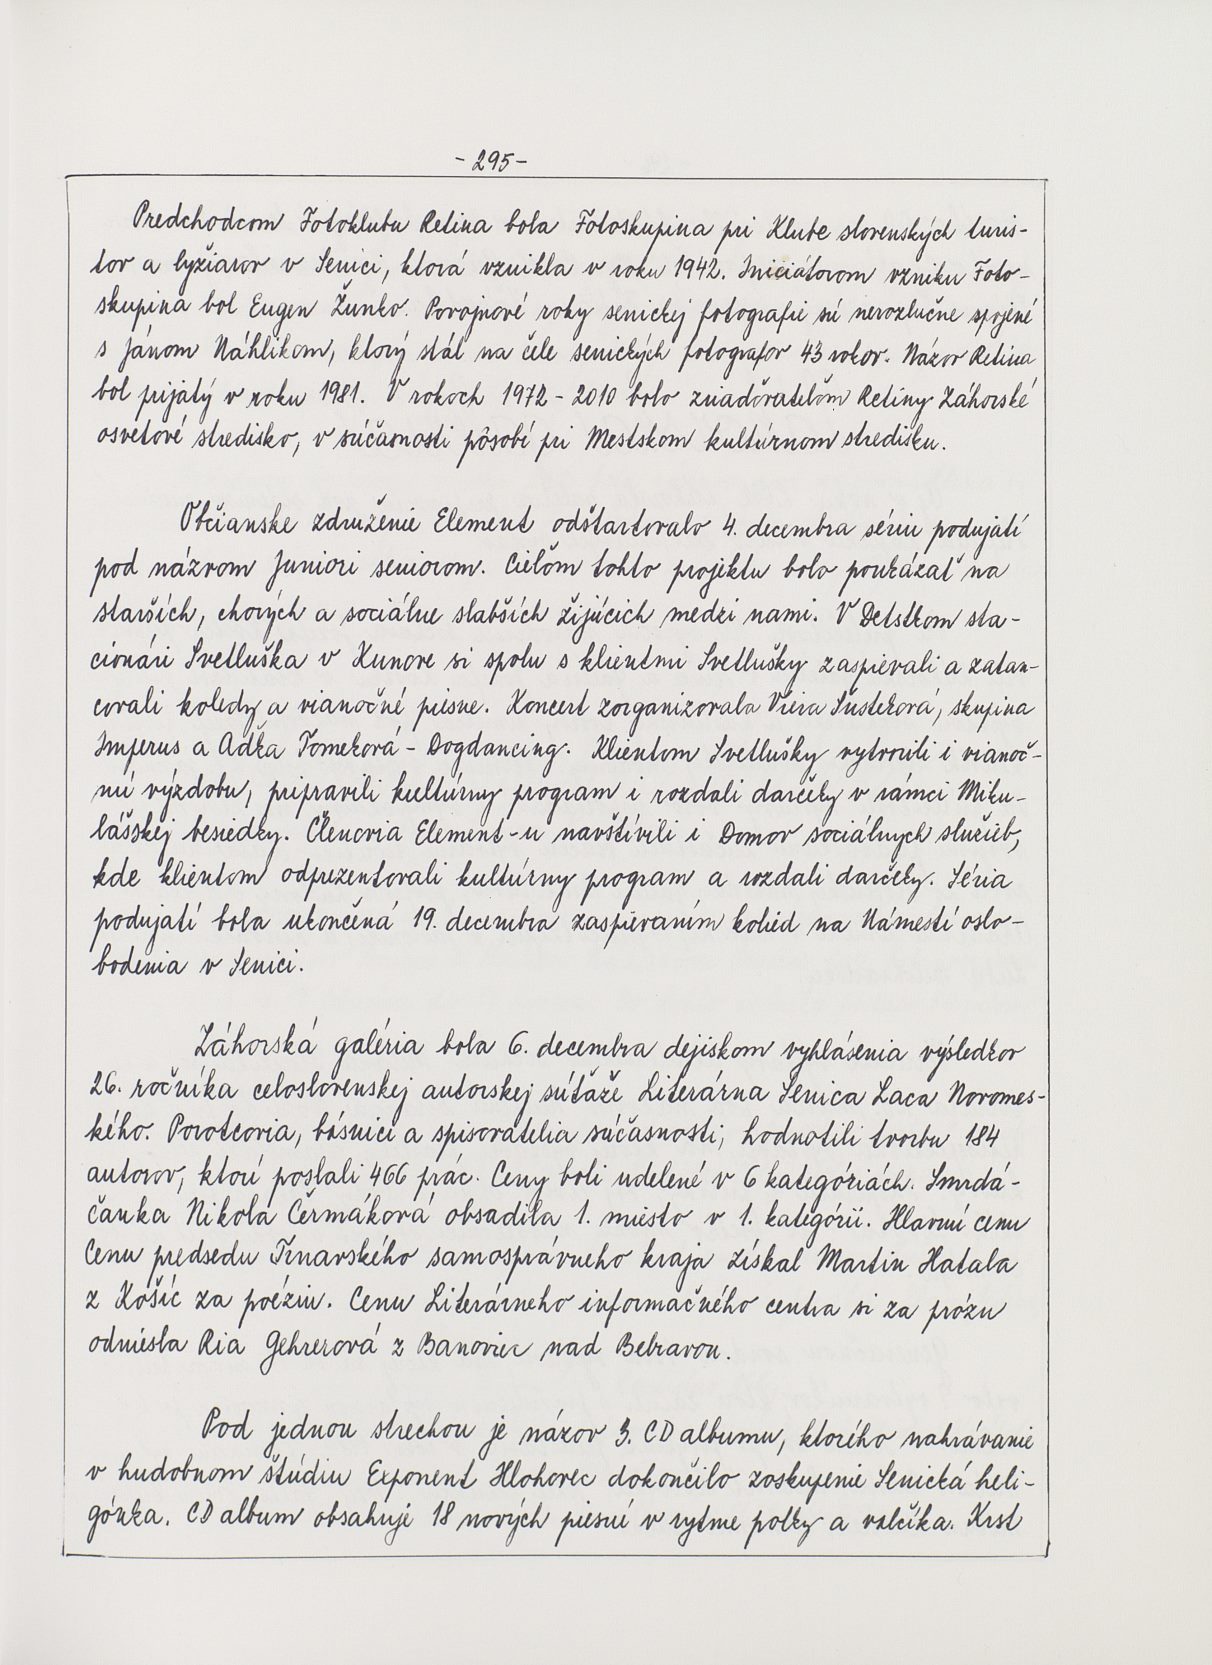 - 295 -
Predchodcom Fotoklubu Retina bola Fotoskupina pri Klube slovenských turis-
tov a lyžiarov v Senici, ktorá vznikla v roku 1942. Iniciátorom vzniku Foto-
skupina bol Eugen Žunko. Povojnové roky senickej fotografie sú nerozlučne spojené
s Jánom Náhlikom, ktorý stál na čele senických fotografov 43 rokov. Názov Retina
bol prijatý v roku 1981. V rokoch 1972 - 2010 bolo zriaďovateľom Retiny Záhorské
osvetové stredisko, v súčasnosti pôsobí pri Mestskom kultúrnom stredisku.
Občianske združenie Element odštartovalo 4. decembra sériu podujatí
pod názvom Juniori seniorom. Cieľom tohto projektu bolo poukázať na
starších, chorých a sociálne slabších žijúcich medzi nami. V Detstkom sta-
cionári Svetluška v Kunove si spolu s klientmi Svetlušky zaspievali a zatan-
covali koledy a vianočné piesne. Koncert zorganizovala Viera Šusteková, skupina
Imperus a Aďka Tomeková - Dogdancing. Klientom Svetlušky vytvorili i vianoč-
nú výzdobu, pripravili kultúrny program i rozdali darčeky v rámci Miku-
lášskej besiedky. Členovia Element-u navštívili i Domov sociálnych služieb,
kde klientom odprezentovali kultúrny program a rozdali darčeky. Séria
podujatí bola ukončená 19. decembra zaspievaním kolied na Námestí oslo-
bodenia v Senici.
Záhorská galéria bola 6. decembra dejiskom vyhlásenia výsledkov
26. ročníka celoslovenskej autorskej súťaže Literárna Senica Laca Novomes-
kého. Porotcovia, básnici a spisovatelia súčasnosti, hodnotili tvorbu 184
autorov, ktorí poslali 466 prác. Ceny boli udelené v 6 kategóriách. Smrdá-
čanka Nikola Čermáková obsadila 1. miesto v 1. kategórii. Hlavnú cenu
Cenu predsedu Trnavského samosprávneho kraja získal Martin Hatala
z Košíc za poéziu. Cenu Literárneho informačného centra si za prózu
odniesla Ria Gehrerová z Banoviec nad Bebravou.
Pod jednou strechou je názov 3. CD albumu, ktorého nahrávanie
v hudobnom štúdiu Exponent Hlohovec dokončilo zoskupenie Senická heli-
gónka. CD album obsahuje 18 nových piesní v rytme polky a valčíka. Krst